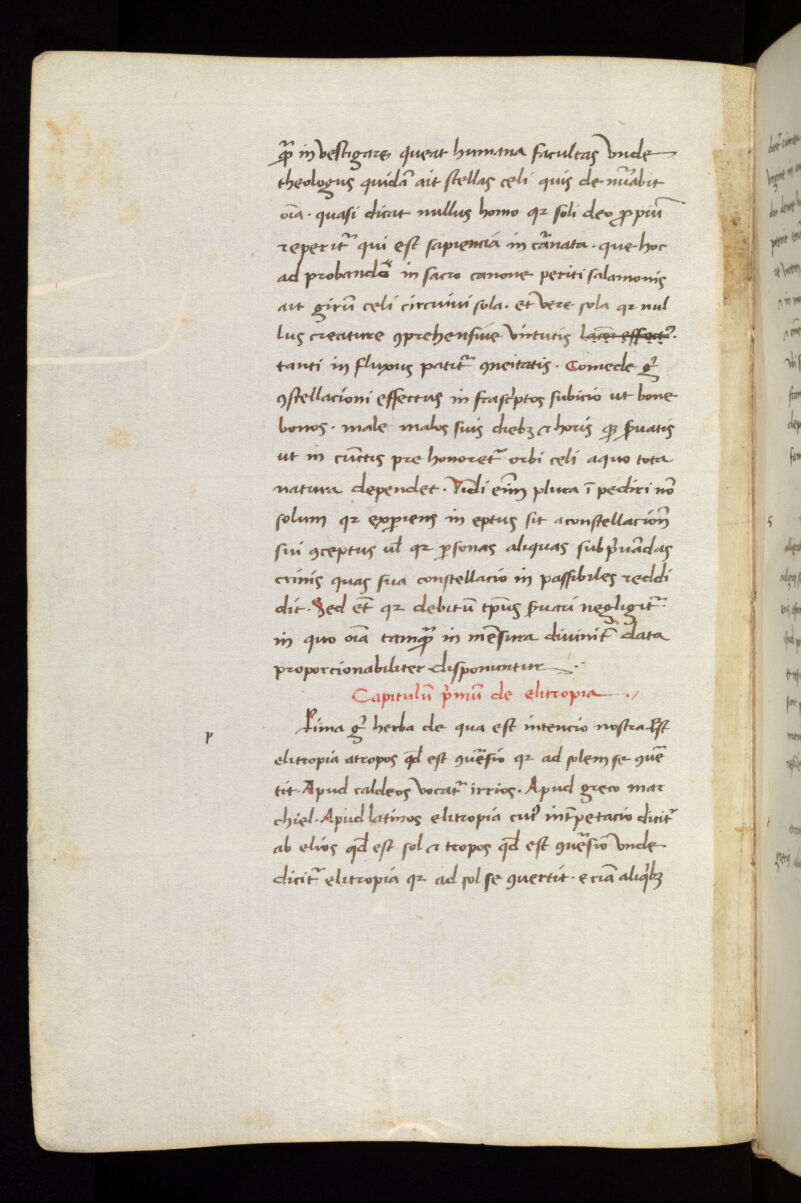 qᷓꝫ investigare, queat humana facultas Vnde
theologus quidā ait stellas celi quis de nūabit
oīa · quasi dicat nullus homo qꝛ soli deo ꝓpiū
reperitʳ qui est sapiencia in cārnata · que hoc
ad probandō in sacro canone periti salamonis
ait girū celi circuivi sola · et vere sola qꝛ nul
lus creature ꝯprehensive virtutis
tanti in fluxus patitʳ ꝯneitatis · Comede gͥ
ꝯstellacioni effectus in frascͥptos subicio ut bone
bonos · male malos suis diebꝫ ⁊ horis ꝓuatis
ut in cūctis pre honoretʳ orbi celi aquo tota
natura dependet · Vidi eīm plura ī pediri nō
solum qꝛ exꝑiens in eptus sit aconstellaciōn
sui ꝯceptus ul̄ qꝛ ꝑsonas aliquas subpͥuādas
crinis quas sua constellacio in passibiles reddi
dit · Sed et̄ qꝛ debitū tp̄us ẜuari negligitʳ
in quo oīa tamqᷓꝫ in mēsura divinitʳ data
proporcionabiliter disponuntur
Capitulū pͥmū de elitropia
Prima gͥ herba de qua est intencio nostra Est
p
elitropia atropos qd̄ est ꝯuēsio qꝛ ad solem se ꝯuē
tit · Apud caldeos vocatʳ irrios · Apud greco mar
chiel · Apud latinos elitropia cuꝰ intͥpetacio dicitʳ
ab elios qd̄ est sol ⁊ tropos qd̄ est ꝯuēsio Vnde
dicitʳ elitropia qꝛ ad sol se ꝯuertit · eciā aliqͥbꝫ